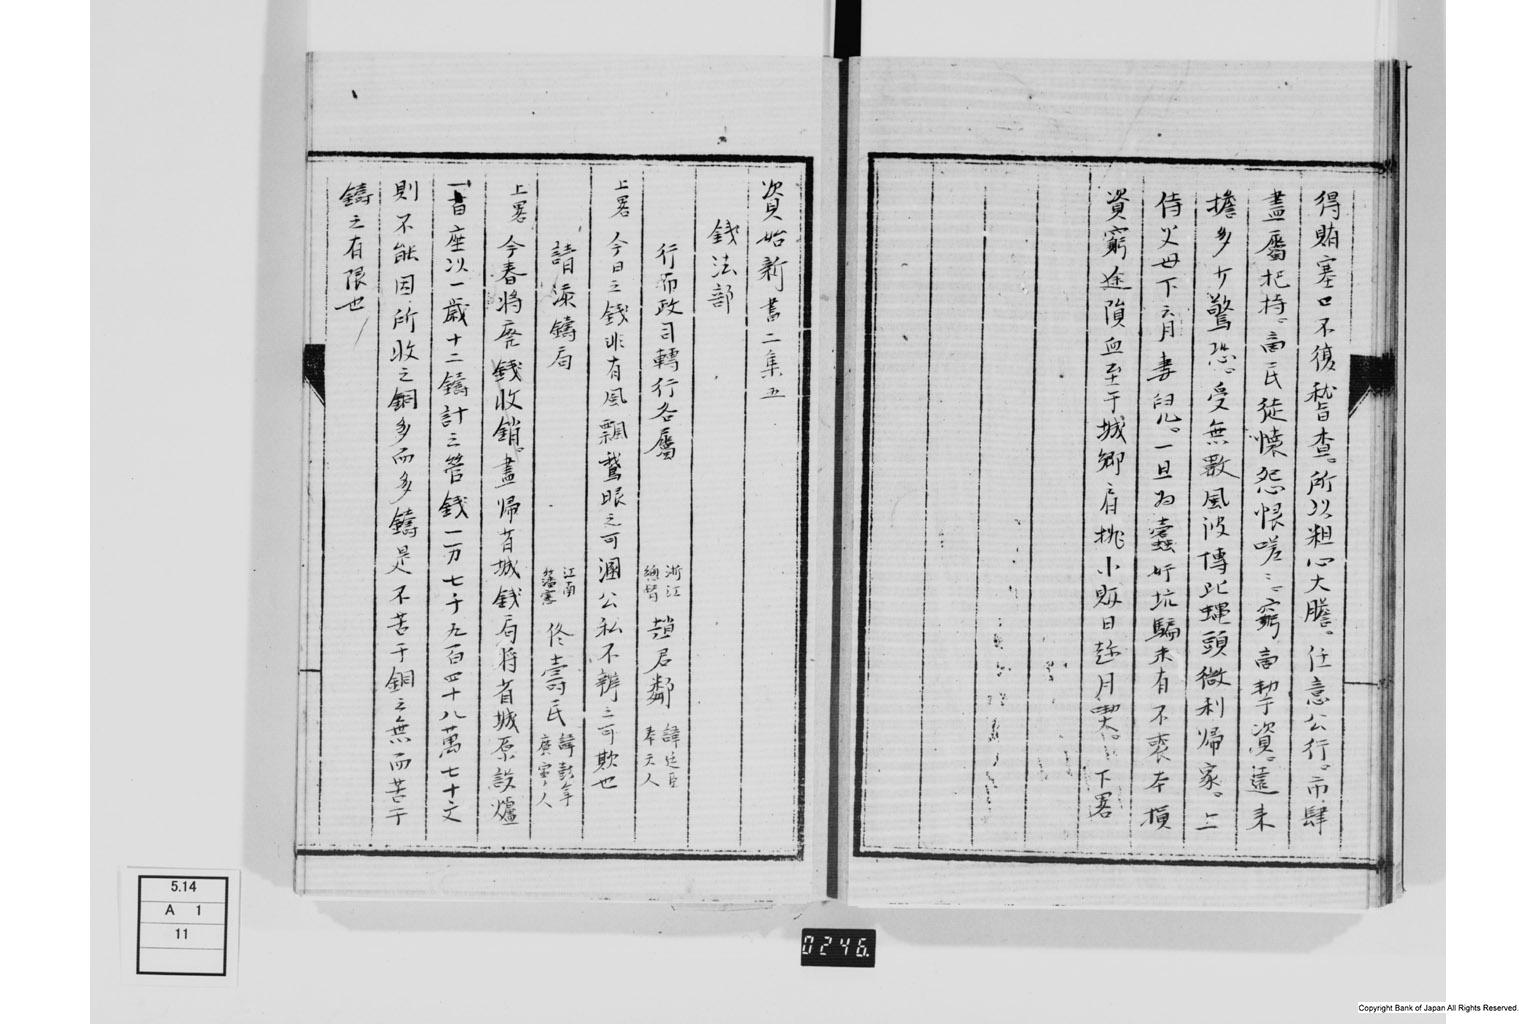 得賄塞口不復稽查。所以粗心大膽。任意公行。市肆
盡屬把持。商民徒懷怨恨嗟〻窮商挈資。遠来
擔多少驚恐。受無數風波傳此蠅頭微利帰家。上
侍父母下育妻兒。一旦為蠹奸坑騙未有不喪本損
資窮途隕血至于城鄉肩挑小販日趂月 下畧
資始新書二集五
錢法部
行布政司轉行各屬 浙江總督 趙君鄰 諱廷臣奉天人
上畧 今日之錢非有風飄鵞眼之可溷公私不辨之可欺也
請添鑄局 江南藩憲 佟壽民 諱彭年廣寧人
上畧 今春将廃錢收銷。盡帰省城錢局将省城原設爐
一百座以一歳十二鑄計之管錢一万七千九百四十八萬七十文
則不能因所收之銅多而多鑄是不苦于銅之無而苦于
鑄之有限也
5.14
A 1
11
0246.
Copyright Bank of Japan All Rights Reserved.